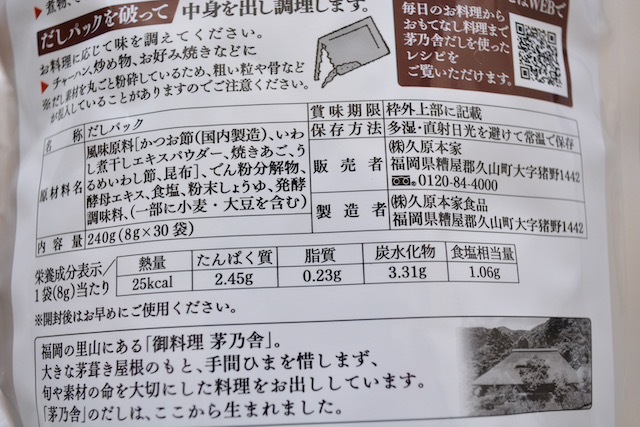 ▶煮物、
だしパックを破って 中身を出し調理します。
お料理に応じて味を調えてください。
▶チャーハン、炒め物、お好み焼きなどに
※だし素材を丸ごと粉砕しているため、粗い粒や骨など
が混入していることがありますのでご注意ください。
はWEBで
毎日のお料理から
おもてなし料理まで
茅乃舎だしを使った
レシピを
ご覧いただけます。
名 称 だしパック
原材料名 風味原料[かつお節(国内製造)、いわ
し煮干しエキスパウダー、焼きあご、う
るめいわし節、昆布]、でん粉分解物、
酵母エキス、食塩、粉末しょうゆ、発酵
調味料、(一部に小麦・大豆を含む)
内容量 240g(8g×30袋)
賞味期限 枠外上部に記載
保存方法 多湿・直射日光を避けて常温で保存
販売者 ㈱久原本家
福岡県糟屋郡久山町大字猪野1442
0120-84-4000
製造者 ㈱久原本家食品
福岡県糟屋郡久山町大字猪野1442
栄養成分表示/
1袋(8g)当たり
熱量 たんぱく質 脂質 炭水化物 食塩相当量
25kcal 2.45g 0.23g 3.31g 1.06g
※開封後はお早めにご使用ください。
福岡の里山にある「御料理 茅乃舎」。
大きな茅葺き屋根のもと、手間ひまを惜しまず、
旬や素材の命を大切にした料理をお出ししています。
「茅乃舎」のだしは、ここから生まれました。